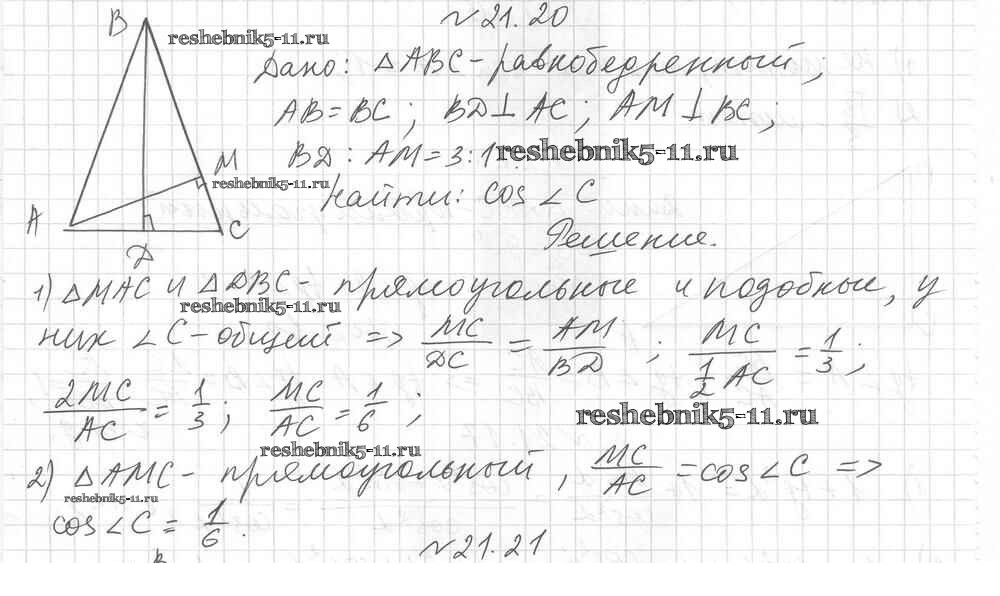 №21.20
B
reshebnik5-11.ru
Дано: △ABC - равнобедренный,
AB = BC; BD ⊥ AC; AM ⊥ BC;
BD : AM = 3:1
reshebnik5-11.ru
M
reshebnik5-11.ru
Найти: cos ∠C
A
C
Решение.
Д
1) △MAC и △DBC - прямоугольные и подобные, у
reshebnik5-11.ru
них ∠C - общий => MC/DC = AM/BD ; MC/(1/2 AC) = 1/3;
2MC/AC = 1/3; MC/AC = 1/6 ;
reshebnik5-11.ru
reshebnik5-11.ru
2) △AMC - прямоугольный, MC/AC = cos ∠C =>
reshebnik5-11.ru
cos ∠C = 1/6.
№21.21